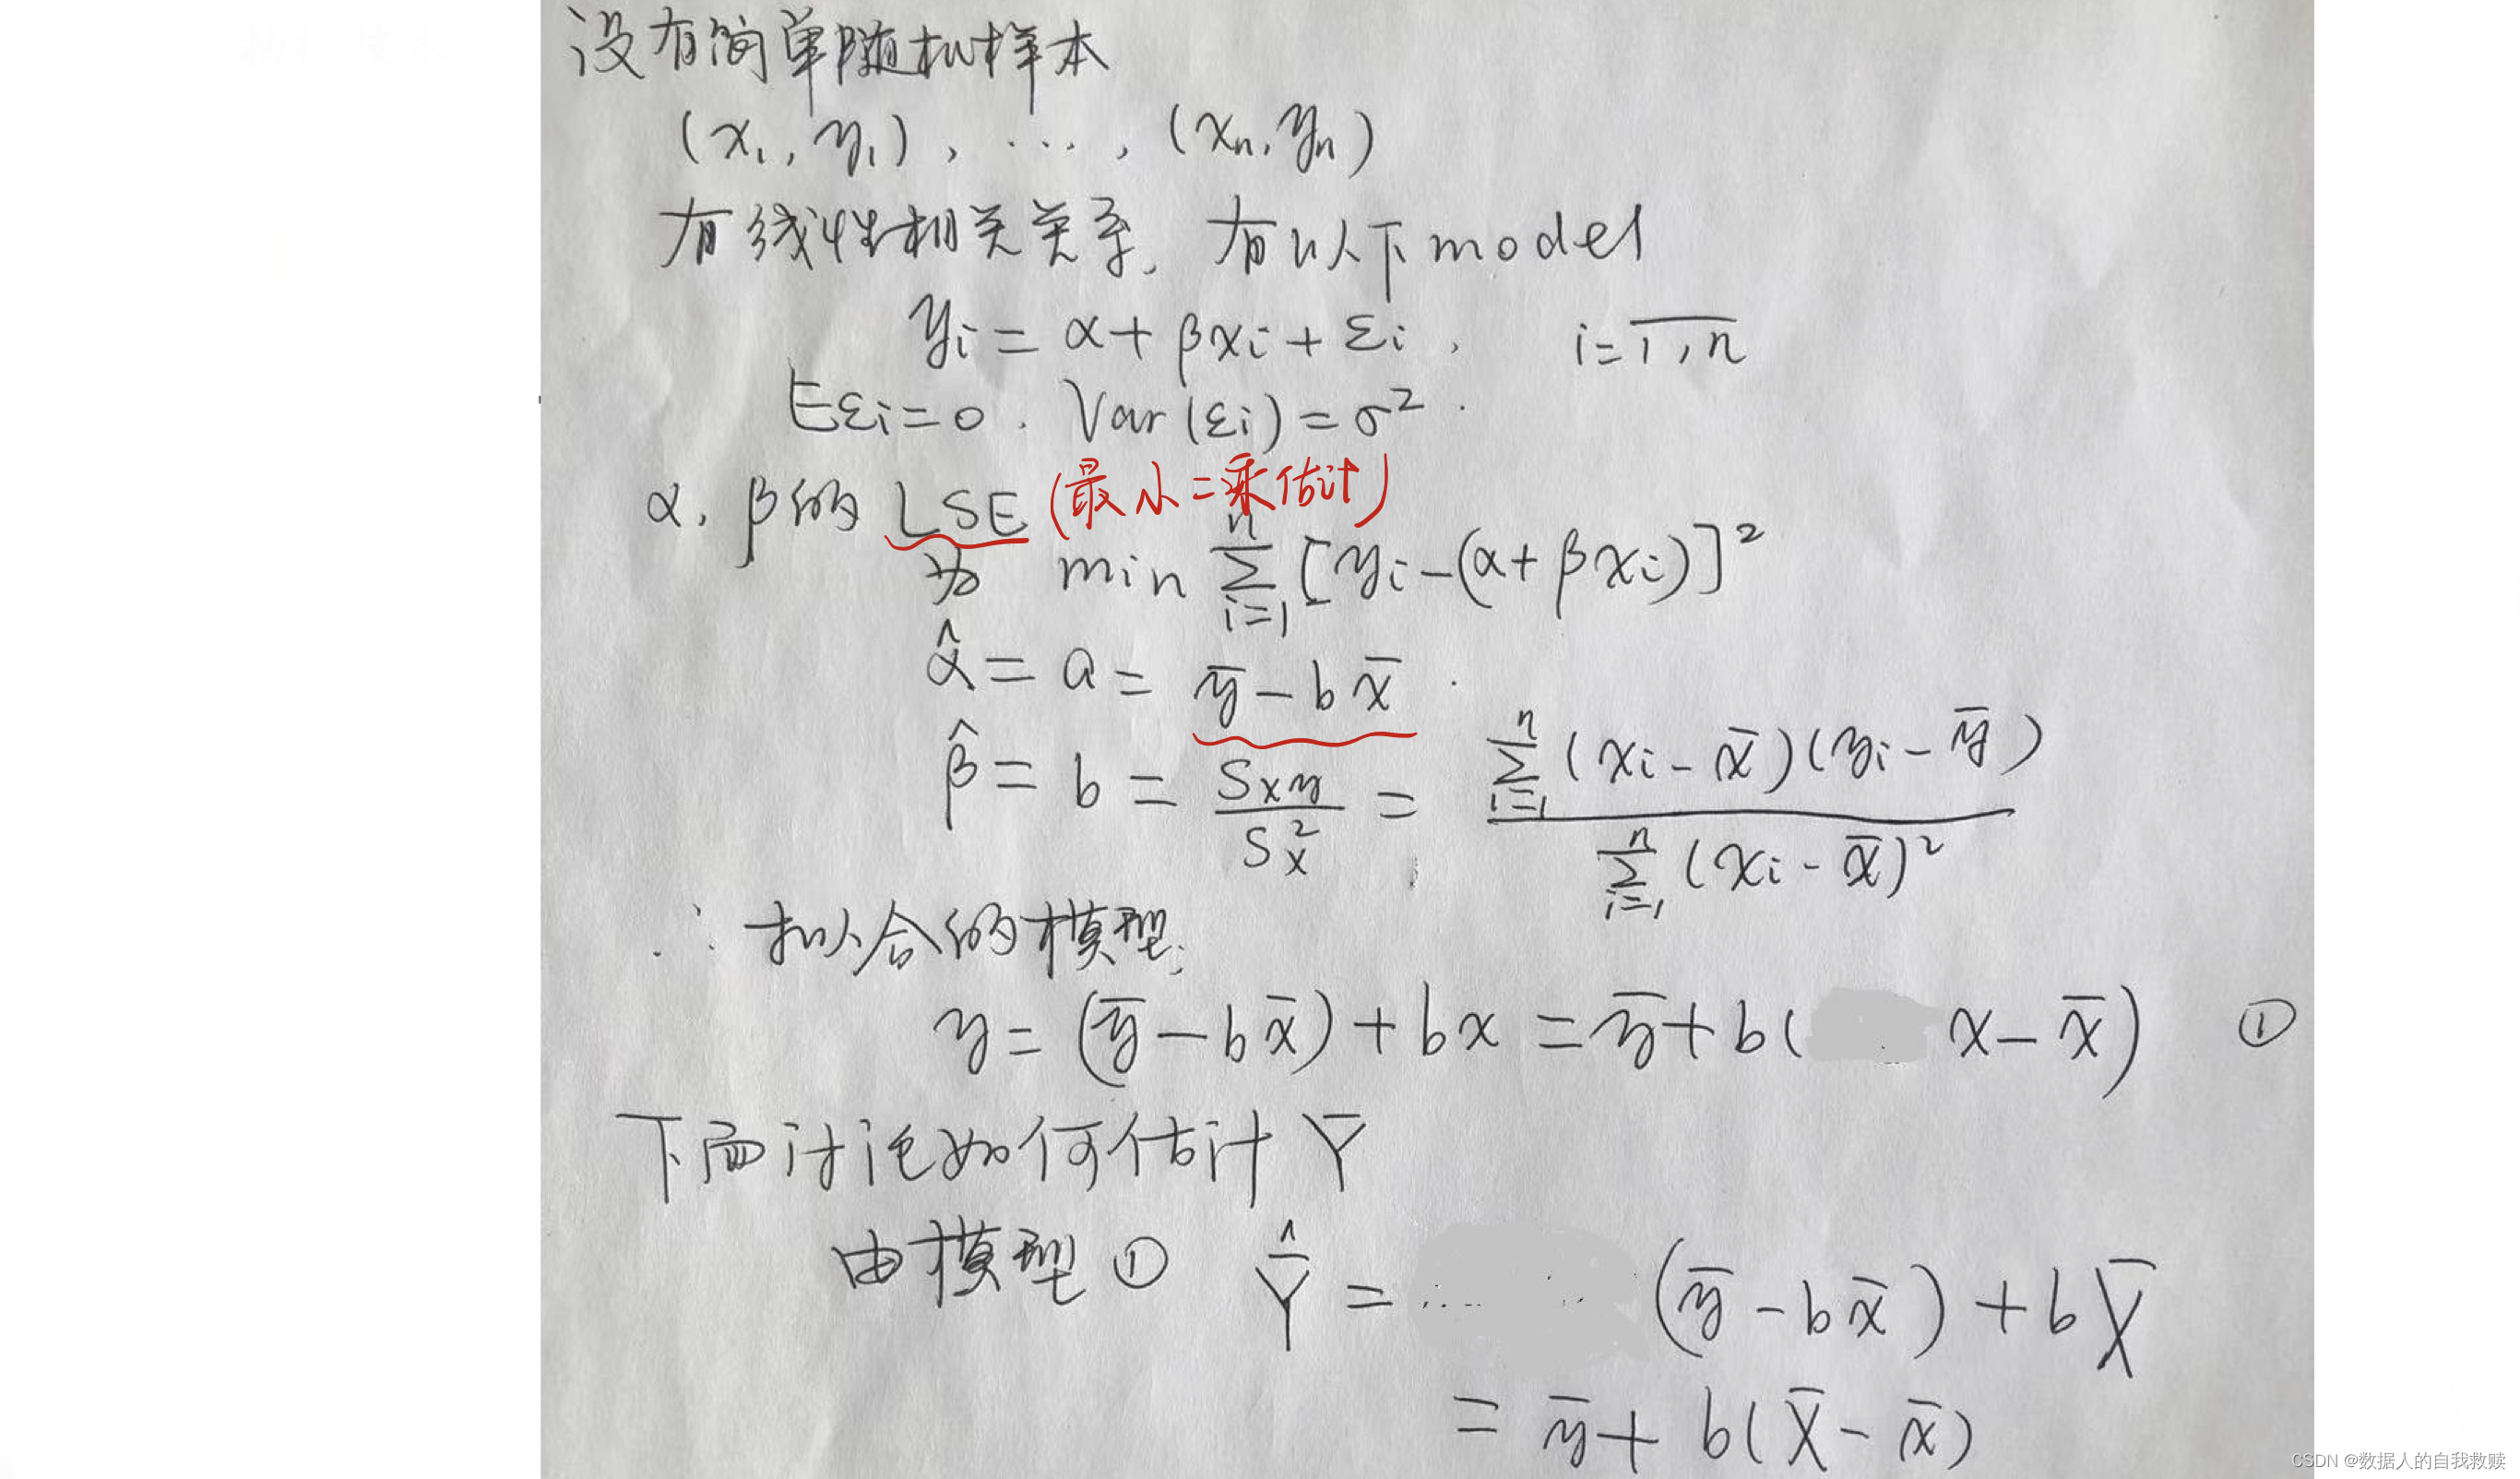 设有简单随机样本
(x₁, y₁), ···, (xₙ, yₙ)
有线性相关关系, 有以下model
yᵢ = α + βxᵢ + εᵢ, i = \overline{1, n}
Eεᵢ = 0. Var(εᵢ) = σ².
α, β的 LSE (最小二乘估计)
为 min \sum_{i=1}^{n} [yᵢ - (α + βxᵢ)]²
\hat{α} = a = \bar{y} - b\bar{x}.
\hat{β} = b = \frac{S_{xy}}{S_x^2} = \frac{\sum_{i=1}^{n} (xᵢ - \bar{x})(yᵢ - \bar{y})}{\sum_{i=1}^{n} (xᵢ - \bar{x})²}
∴ 拟合的模型:
y = (\bar{y} - b\bar{x}) + bx = \bar{y} + b(x - \bar{x}) ①
下面讨论如何估计 \bar{Y}
由模型① \hat{\bar{Y}} = (\bar{y} - b\bar{x}) + b\bar{X}
= \bar{y} + b(\bar{X} - \bar{x})
CSDN @数据人的自我救赎